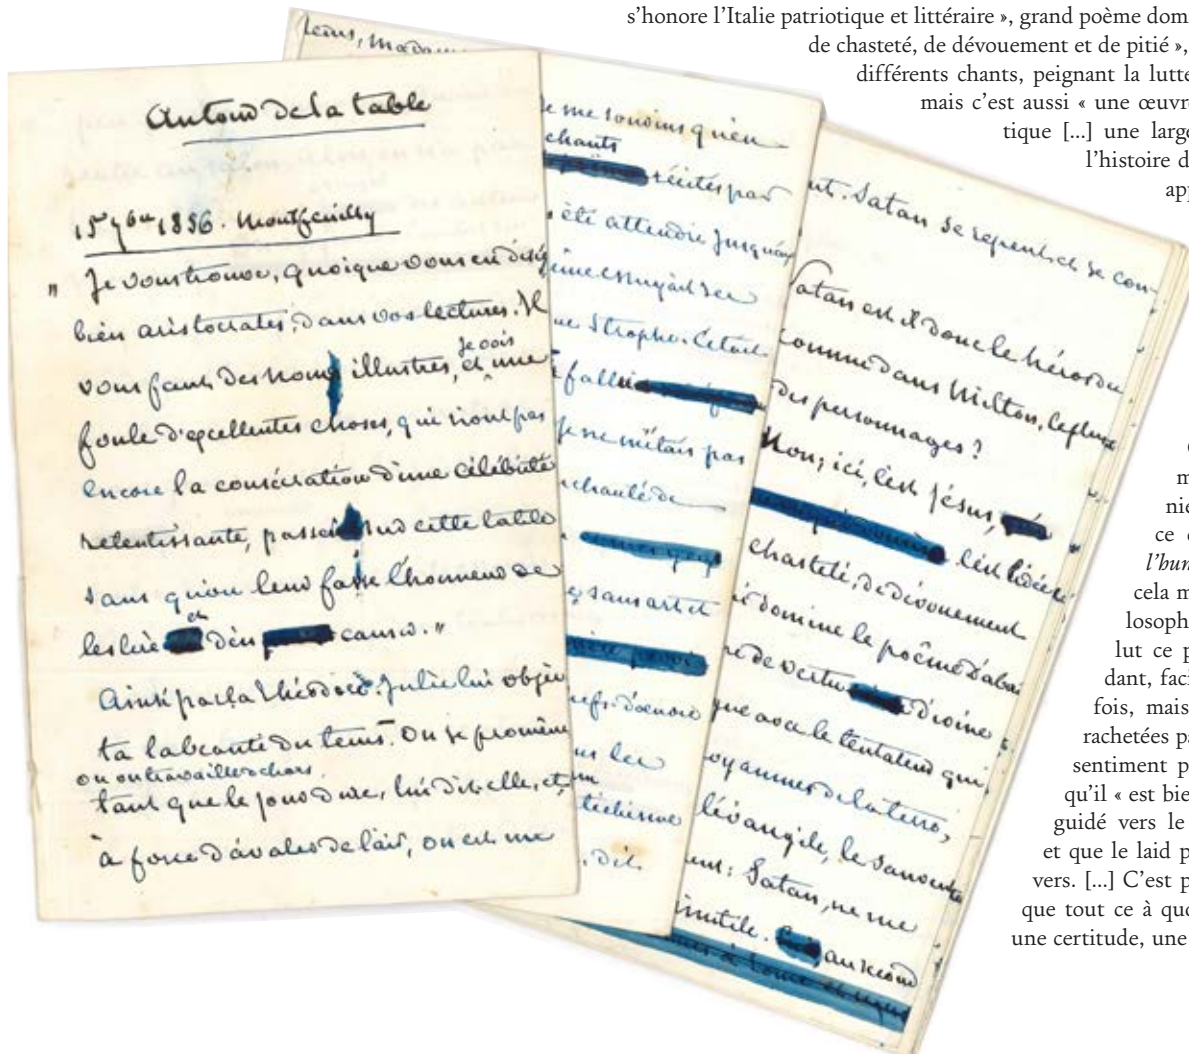 s'honore l'Italie patriotique et littéraire », grand poème dom
de chasteté, de dévouement et de pitié »,
différents chants, peignant la lutte
mais c'est aussi « une œuvre
tique [...] une large
l'histoire d
app
m
nie
ce
l'hum
cela m
losoph
lut ce p
dant, faci
fois, mais
rachetées pa
sentiment p
qu'il « est bie
guidé vers le
et que le laid p
vers. [...] C'est p
que tout ce à quo
une certitude, une
Autour de la table
15 7bre 1856. Montfeuilly
" Je vous trouve, quoique vous en disiez
bien aristocrates, dans vos lectures. Il
vous faut des noms illustres, et je vois une
foule d'excellentes choses, qui n'ont pas
encore la consécration d'une célébrité
retentissante, passer sur cette table
sans qu'on leur fasse l'honneur de
les lire et d'en causer. "
Ainsi parla Théodore. Julie lui objec
ta la beauté du tems. On se promène
ou on travaille dehors
tant que le jour dure, lui dit-elle, et
à force d'avaler de l'air, on est
tems, madame
je me souviens qu'en
chants
récités par
été attendrie jusqu'au
strophe. C'était
je ne m'étais pas
enchanté de
sans art et
chefs-d'œuvre
dit.
Satan se repent et se con-
Satan est il donc le héros du
comme dans Milton, le plus
des personnages ?
Non; ici, c'est Jésus,
c'est l'idée
chasteté, de dévouement
domine le poëme
de vertu divine
que avec le tentateur qui,
royaumes de la terre,
l'évangile, le
Satan, ne me
inutile. au second